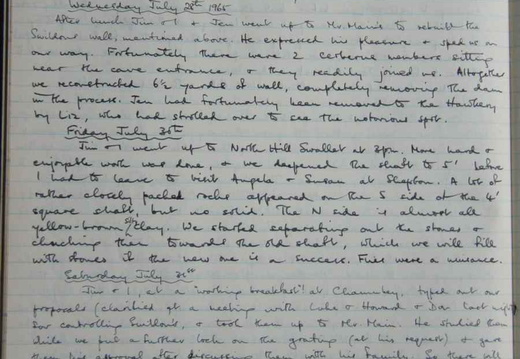 Wednesday July 28th 1965
After lunch Jim & I & Jen went up to Mr. Main's to rebuild the
Swildons wall, mentioned above. He expressed his pleasure & sped us on
our way. Fortunately there were 2 Cerberus members sitting
near the cave entrance, & they readily joined us. Altogether
we reconstructed 6½ yards of wall, completely removing the dam
in the process. Jen had fortunately been removed to the Hawthery
by Liz, who had strolled over to see the notorious spot.
Friday July 30th
Jim & I went up to North Hill Swallet at 3pm. More hard &
enjoyable work was done, & we deepened the shaft to 5' before
I had to leave to visit Angela & Susan at . A lot of
rather closely packed rocks appeared on the S side of the 4'
square shaft, but no solid. The N side is almost all
yellow-brown silty clay. We started separating out the stones &
chucking them towards the old shaft, which we will fill
with stones if the new one is a success. Flies were a nuisance.
Saturday July 31st
Jim & I, at a 'working breakfast' at Chaumbey, typed out our
proposals (clarified at a meeting with Luke & Howard & Dav last night)
for controlling Swildons, & took them up to Mr. Main. He studied them
while we put a further lock on the grating (at his request) & gave
them his approval after discussing them with his family. So there